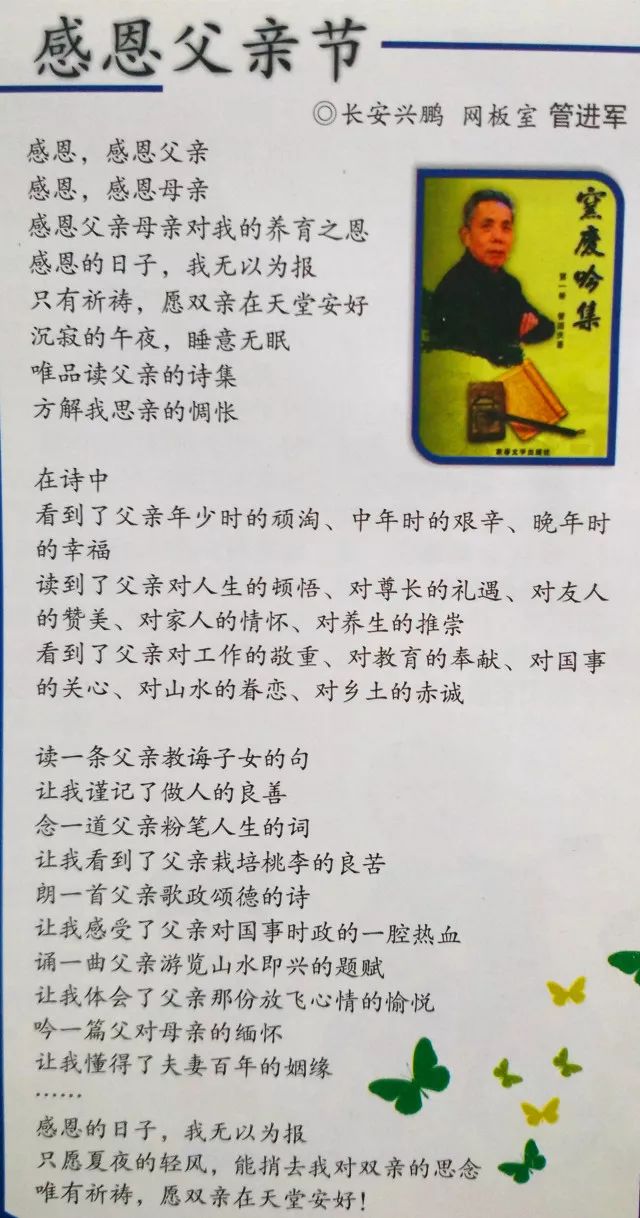 感恩父亲节
◎长安兴鹏 网板室 管进军
感恩，感恩父亲
感恩，感恩母亲
感恩父亲母亲对我的养育之恩
感恩的日子，我无以为报
只有祈祷，愿双亲在天堂安好
沉寂的午夜，睡意无眠
唯品读父亲的诗集
方解我思亲的惆怅
吟集
第一卷
在诗中
看到了父亲年少时的顽淘、中年时的艰辛、晚年时
的幸福
读到了父亲对人生的顿悟、对尊长的礼遇、对友人
的赞美、对家人的情怀、对养生的推崇
看到了父亲对工作的敬重、对教育的奉献、对国事
的关心、对山水的眷恋、对乡土的赤诚
读一条父亲教诲子女的句
让我谨记了做人的良善
念一道父亲粉笔人生的词
让我看到了父亲栽培桃李的良苦
朗一首父亲歌政颂德的诗
让我感受了父亲对国事时政的一腔热血
诵一曲父亲游览山水即兴的题赋
让我体会了父亲那份放飞心情的愉悦
吟一篇父对母亲的缅怀
让我懂得了夫妻百年的姻缘
……
感恩的日子，我无以为报
只愿夏夜的轻风，能捎去我对双亲的思念
唯有祈祷，愿双亲在天堂安好！